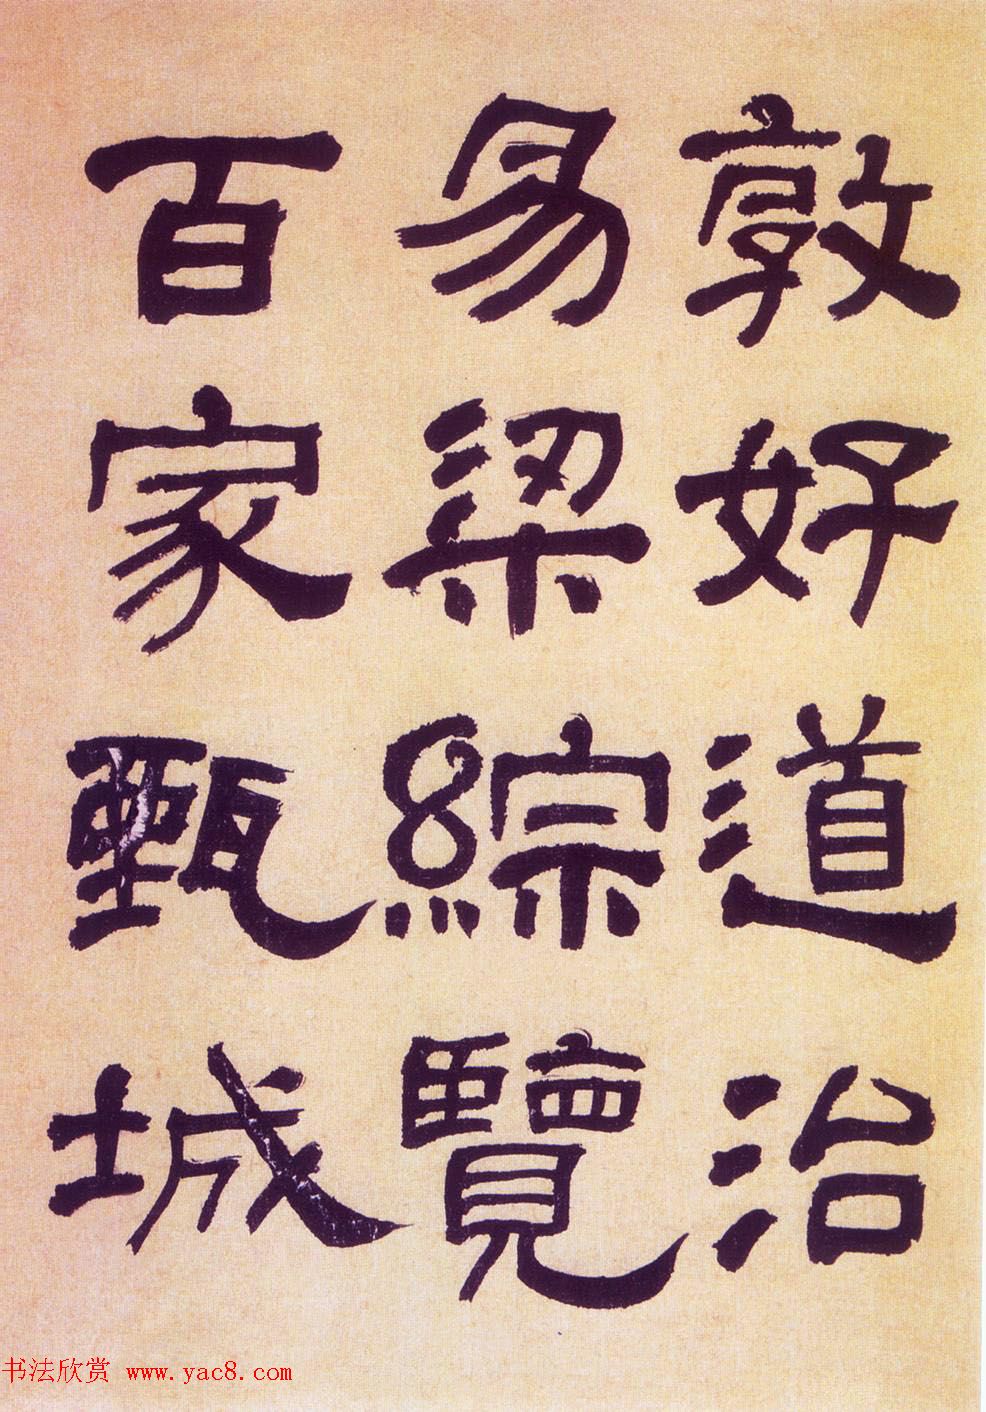 敦好道治
易梁綜覽
百家甄城
书法欣赏 www.yac8.com